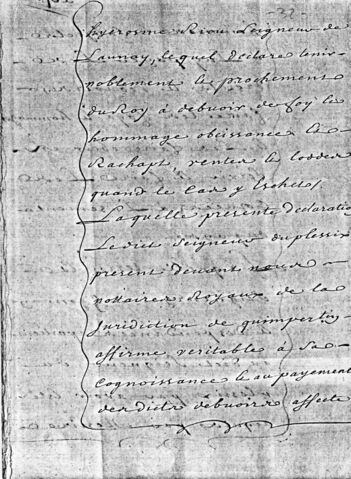 hyerosme Riou Seigneur de
Launay, lequel declare tenir
noblement & prochement
du Roy à debuoir de foy &
hommage obeissance &
Rachapt, ventes & lodder
quand le Cas y Eschet,
Laquelle presente declaration
Ledict Seigneur du plessix
present devant nous
nottaires Royaux de la
Juridiction de quimper
affirme veritable à Sa
Cognoissance & au payement
desdicts debuoirs affecte